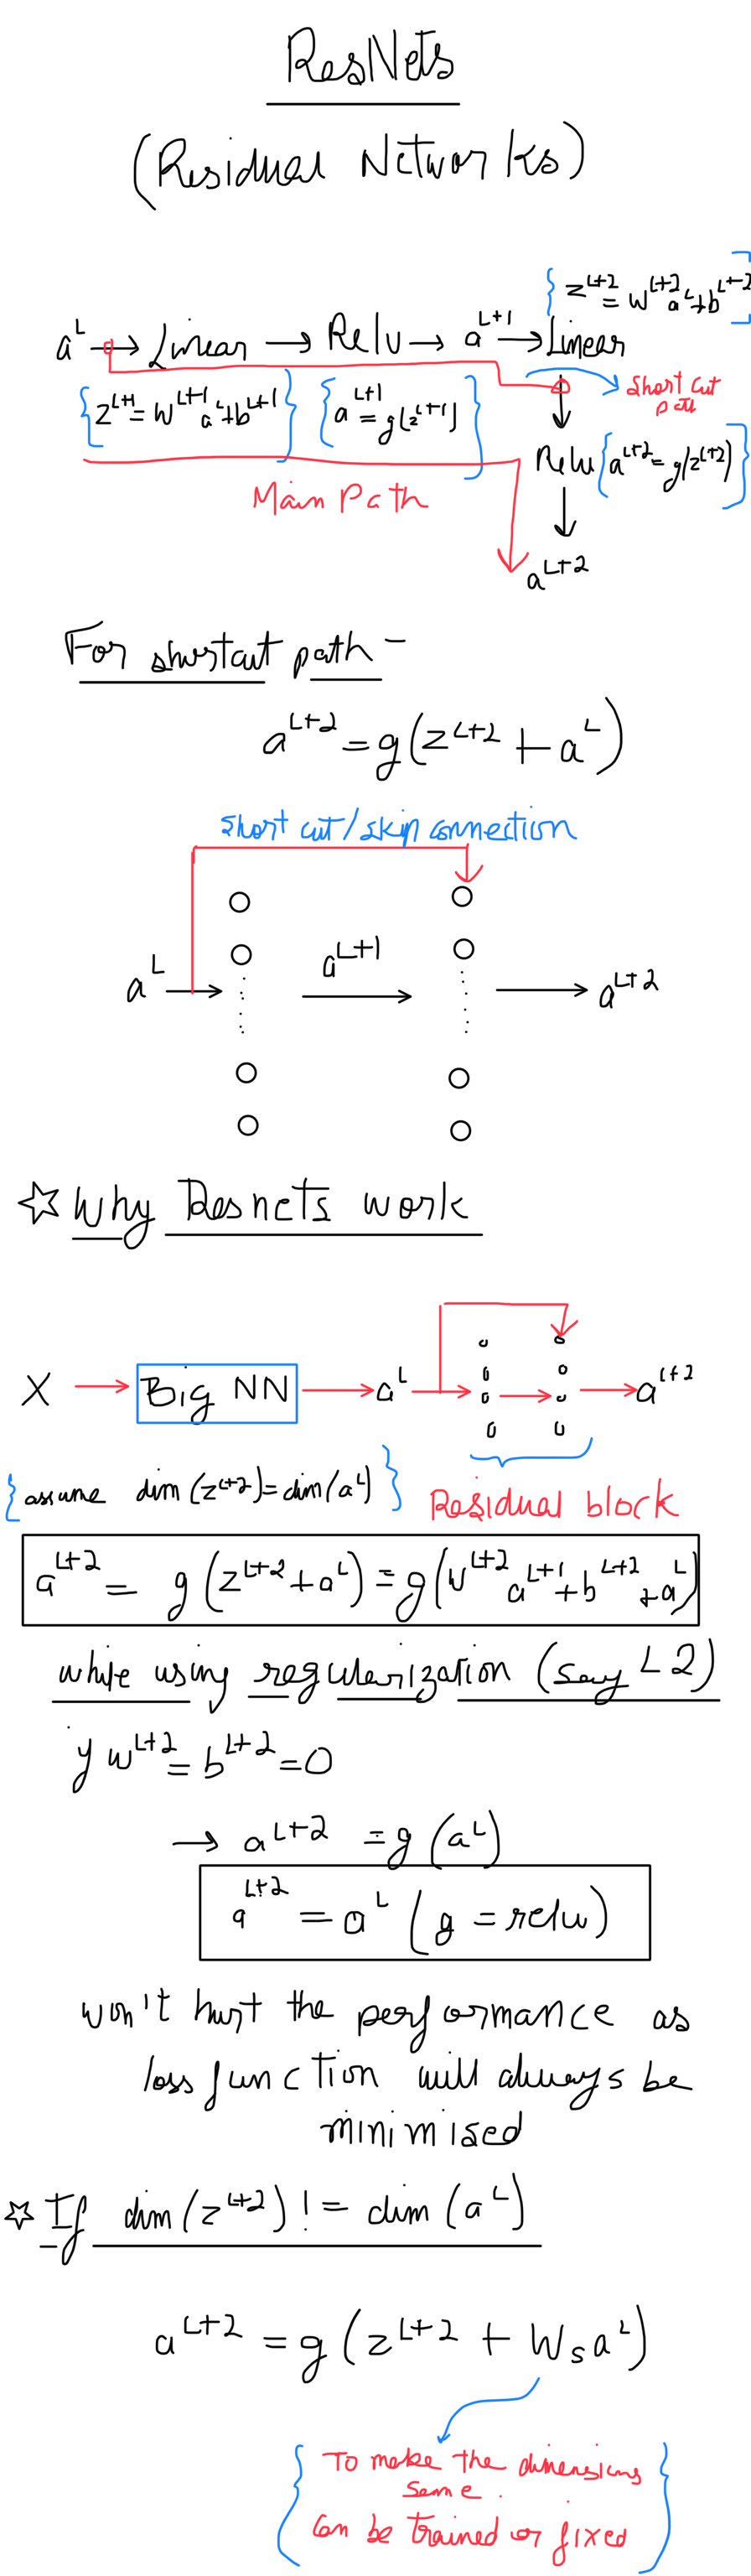 ResNets
(Residual Networks)
{ z^{L+2} = w^{L+2} a^{L} + b^{L+2} }
a^{L} → Linear → Relu → a^{L+1} → Linear
{ z^{L+1} = W^{L+1} a^{L} + b^{L+1} } { a^{L+1} = g(z^{L+1}) }
Short cut
path
Relu { a^{L+2} = g(z^{L+2}) }
Main Path
a^{L+2}
For shortcut path -
a^{L+2} = g(z^{L+2} + a^{L})
Short cut/skip connection
a^{L} → a^{L+1} → a^{L+2}
☆ Why Resnets work
X → Big NN → a^{L} → a^{L+2}
{ assume dim(z^{L+2}) = dim(a^{L}) }
Residual block
a^{L+2} = g(z^{L+2} + a^{L}) = g(W^{L+2} a^{L+1} + b^{L+2} + a^{L})
while using regularization (say L2)
if w^{L+2} = b^{L+2} = 0
→ a^{L+2} = g(a^{L})
a^{L+2} = a^{L} (g = relu)
won't hurt the performance as
loss function will always be
minimised
☆ If dim(z^{L+2}) != dim(a^{L})
a^{L+2} = g(z^{L+2} + W_{s} a^{L})
{ To make the dimensions
same.
Can be trained or fixed }